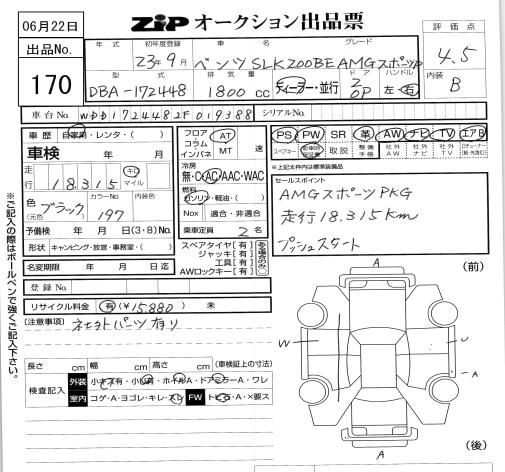 06月22日
ZIP オークション出品票
評価点
4.5
内装
B
出品No.
170
年式
初年度登録
車名
グレード
23年9月
ベンツSLK200BE AMGスポーツP
型式
排気量
ドア
ハンドル
DBA-172448
1800 cc
ディーラー・並行
2
OP
左・右
車台No.
WDD1724482F019388
シリアルNo.
車歴
自家用・レンタ・( )
車検
年
月
走行
18.315
キロ
マイル
色
(元色)
ブラック
カラーNo.
197
内装色
予備検
年 月 日(3・8)No.
形状
キャンピング・放宿・事務室・( )
フロア
コラム
インパネ
AT
MT
速
冷房
無・C・AC・AAC・WAC
燃料
ガソリン・軽油・( )
Nox
適合・非適合
乗車定員
2名
PS PW SR 革 AW ナビ TV エアB
スペアキー
新車時保証書
取説
整備手帳
社外AW
社外ナビ
社外TV
※上記太枠内は標準装備品
セールスポイント
AMGスポーツPKG
走行18.315Km
プッシュスタート
スペアタイヤ【有】
ジャッキ【有】
工具【有】
AWロックキー【有】
名変期限
年 月 日迄
登録No.
リサイクル料金
有(¥15.880) 未
(注意事項)
ネモトパーツ有り
長さ cm
幅 cm
高さ cm
(車検証上の寸法)
検査記入
外装
小キズ有・小凹有・ホイルA・ドアミラーA・ワレ
室内
コゲ・A・ヨゴレ・キレ・スレ
FW
トビ石・A・×要ス
※ご記入の際はボールペンで強くご記入下さい。
(前)
A
W
U
A
A
(後)